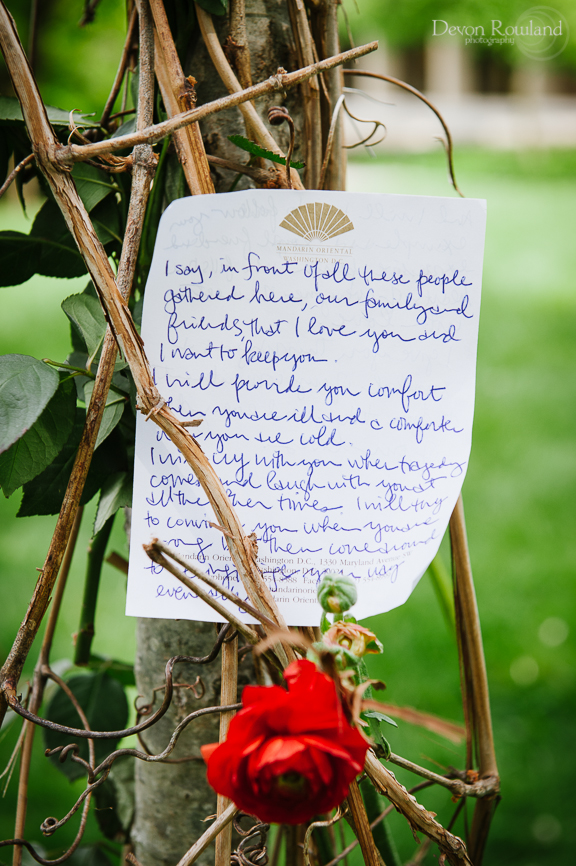 Devon Rowland
photography
MANDARIN ORIENTAL
WASHINGTON D.C.
I say, in front of all these people
gathered here, our family and
friends, that I love you and
I want to keep you.
I will provide you comfort
when you are ill and a comforter
when you are cold.
I will cry with you when tragedy
comes and laugh with you at
all the other times. I will try
to convince you when you are
wrong, but then come around
to your way
even
Mandarin Oriental, Washington D.C., 1330 Maryland Avenue